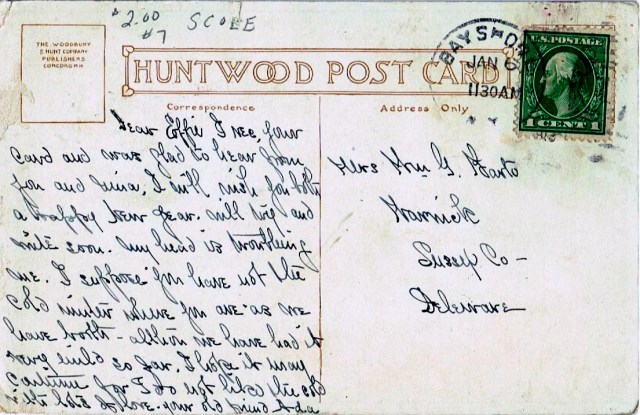 $2.00 SCOLE
#7
THE WOODBURY
E HUNT COMPANY
PUBLISHERS
CONCORD NH
HUNTWOOD POST CARD
BAYSHORE
JAN 6
1130AM
U.S. POSTAGE
1 CENT 1
Correspondence
Address Only
Dear Effie I rec. your
card and was glad to hear from
you and Nina. I will wish you both
a Happy New Year. will try and
write soon. my head is troubling
me. I suppose you have not the
cold winter where you are as we
have north - althou we have had it
very mild so far. I hope it may
continue for I do not like the cold
with lots of love. your old friend Ada
Mrs Wm G.
Warwick
Sussex Co -
Deleware